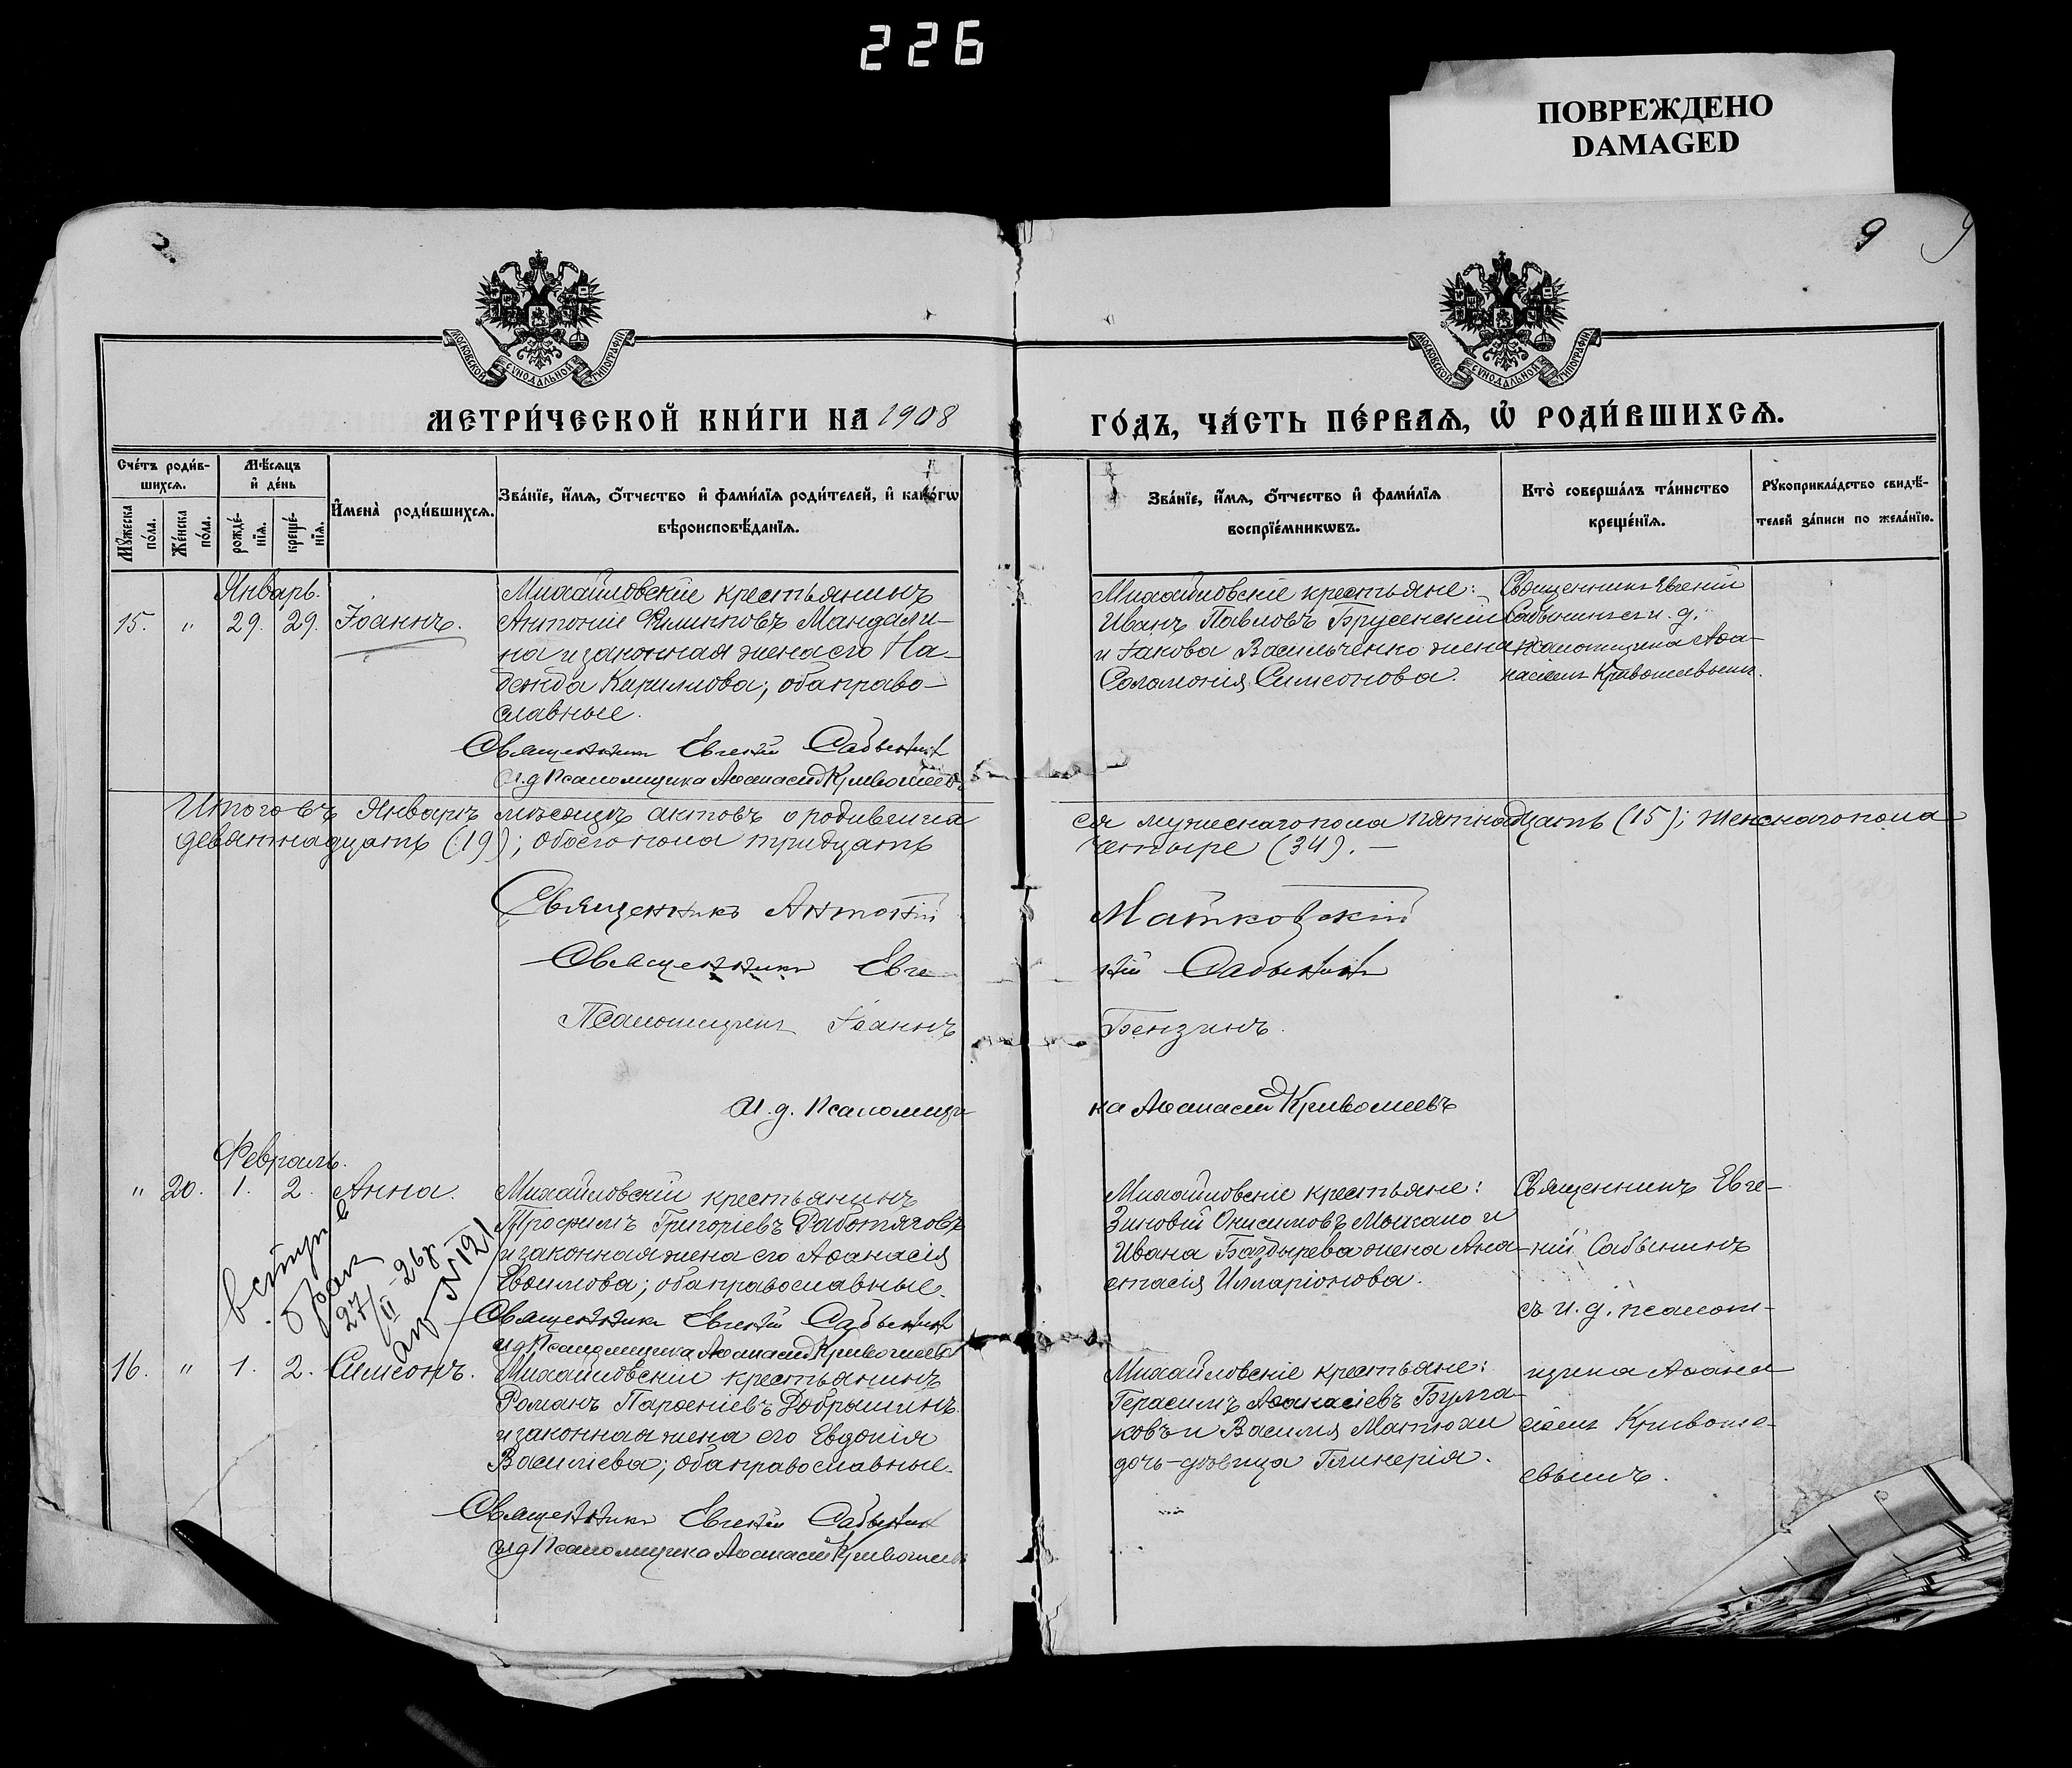 226
ПОВРЕЖДЕНО
DAMAGED
9
9
МОСКОВСКОЙ СѴНОДАЛЬНОЙ ТИПОГРАФІИ
МОСКОВСКОЙ СѴНОДАЛЬНОЙ ТИПОГРАФІИ
МЕТРИ́ЧЕСКОЙ КНИ́ГИ НА 1908
ГО́ДЪ, ЧА́СТЬ ПЕ́РВАѦ, Ѡ҆ РОДИ́ВШИХСѦ.
Сче́тъ роди́в-
шихсѧ.
Мꙋ́жеска по́ла.
Же́нска по́ла.
Мѣ́сѧцъ
и҆ де́нь
рожде́-
нїѧ.
креще́-
нїѧ.
И҆мена̀ роди́вшихсѧ.
Зва́нїе, и҆́мѧ, ѻ҆́тчество и҆ фами́лїѧ роди́телей, и҆ како́гѡ
вѣроисповѣ́данїѧ.
Зва́нїе, и҆́мѧ, ѻ҆́тчество и҆ фами́лїѧ
воспрїе́мникѡвъ.
Кто̀ соверша́лъ та́инство
креще́нїѧ.
Рꙋкоприкла́дство свидѣ́-
телей за́писи по жела́нїю.
Январь.
15. " 29. 29. Іоаннъ.
Михайловскіе крестьянинъ
Антоній Филипповъ Мандали-
на и законная жена его На-
дежда Кириллова; оба право-
славные.
Священникъ Евгеній Сабынинъ
И.д. Псаломщика Аѳанасій Кривошеевъ
Михайловскіе крестьяне:
Иванъ Павловъ Брусенскій
и Іакова Васильченко жена
Соломонія Симеонова.
Священникъ Евгеній
Сабынинъ съ и. д.
псаломщика Аѳа-
насіемъ Кривошеевымъ.
Итого въ Январѣ мѣсяцѣ актовъ о родивших
ся мужескаго пола пятнадцать (15); женскаго пола
девятнадцать (19); обоего пола тридцать
четыре (34). —
Священникъ Антоній Матковскій
Священникъ Евгеній Сабынинъ
Псаломщикъ Іоаннъ Бензинъ.
И. д. Псаломщика Аѳанасій Кривошеевъ
Февраль.
" 20. 1. 2. Анна.
Михайловскій крестьянинъ
Трофимъ Григоріевъ Работяговъ
и законная жена его Аѳанасія
Евѳимова; оба православные.
Священникъ Евгеній Сабынинъ
И.д. Псаломщика Аѳанасій Кривошеевъ
Михайловскіе крестьяне:
Зиновій Онисимовъ Мыкало и
Ивана Баздырева жена Ана-
стасія Илларіонова.
Священникъ Евге-
ній Сабынинъ
съ и. д. псалом-
щика Аѳана
сіемъ Кривоше-
евымъ.
вступ. в
брак
27/II-26г
акт N 121
16. " 1. 2. Симеонъ.
Михайловскій крестьянинъ
Романъ Парѳеніевъ Добрышинъ
и законная жена его Евдокія
Василіева; оба православные.
Священникъ Евгеній Сабынинъ
и.д. Псаломщика Аѳанасій Кривошеевъ
Михайловскіе крестьяне:
Герасимъ Аѳанасіевъ Булга-
ковъ и Василія Матюхи
дочь-дѣвица Гликерія.